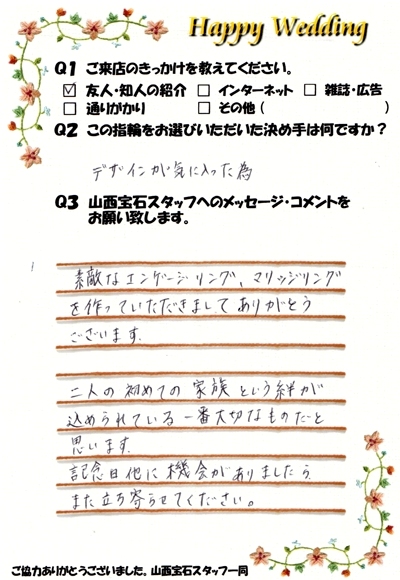 Happy Wedding
Q1 ご来店のきっかけを教えてください。
☑ 友人・知人の紹介 □ インターネット □ 雑誌・広告
□ 通りがかり □ その他 ( )
Q2 この指輪をお選びいただいた決め手は何ですか？
デザインが気に入った為
Q3 山西宝石スタッフへのメッセージ・コメントを
お願い致します。
素敵なエンゲージリング、マリッジリング
を作っていただきましてありがとう
ございます。
二人の初めての家族という絆が
込められている一番大切なものだと
思います。
記念日他に機会がありましたら
また立ち寄らせてください。
ご協力ありがとうございました。山西宝石スタッフ一同